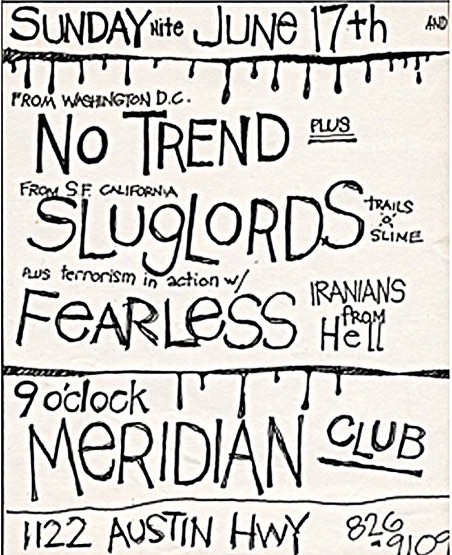 SUNDAY Nite JUNE 17th AND
FROM WASHINGTON D.C.
NO TREND PLUS
FROM S.F. CALIFORNIA
SLUGLORDS TRAILS 'o' SLIME
PLUS terrorism in action w/
FeARLeSS IRANIANS FROM Hell
9 o'clock
MeRIDIAN CLUB
1122 AUSTIN HWY 826-9109